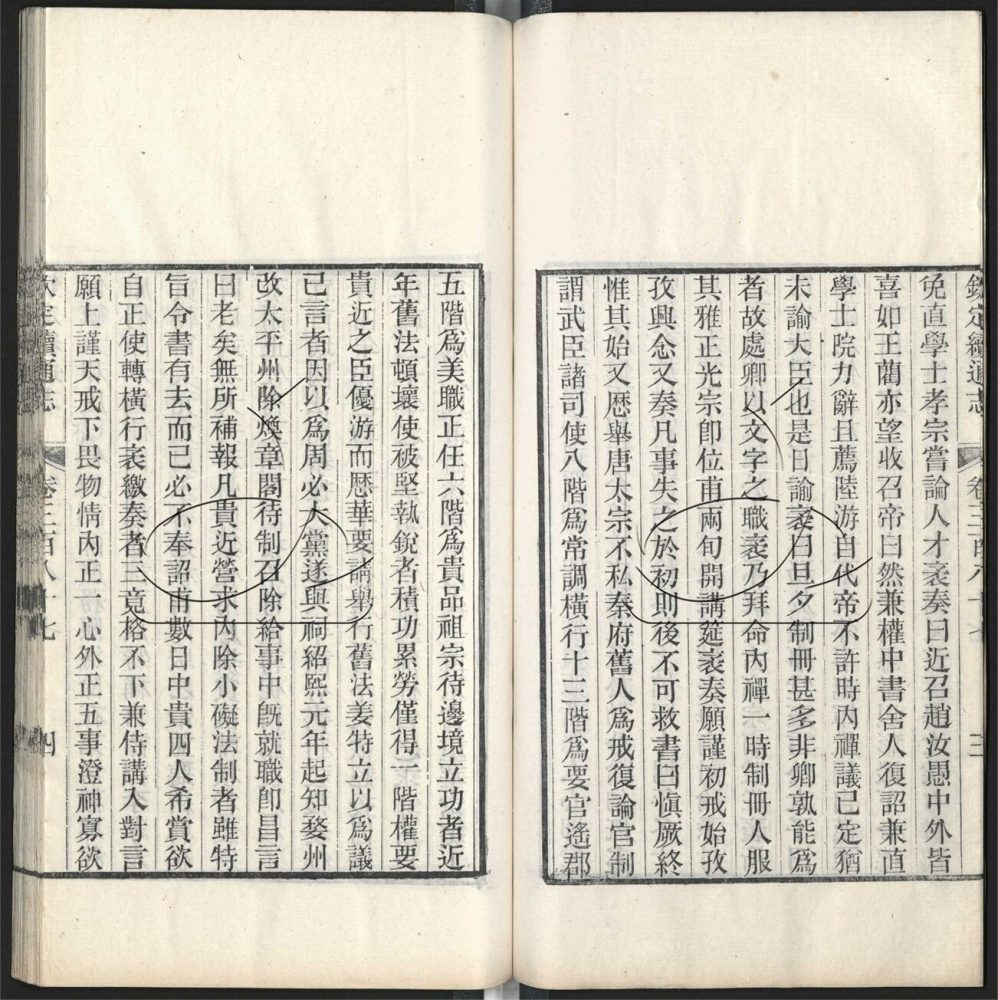 欽定續通志 卷三百八十七 三
免直學士孝宗嘗論人才袤奏曰近召趙汝愚中外皆
喜如王藺亦望收召帝曰然兼權中書舍人復詔兼直
學士院力辭且薦陸游自代帝不許時內禪議已定猶
未諭大臣也是日諭袤曰旦夕制冊甚多非卿孰能爲
者故處卿以文字之職袤乃拜命內禪一時制冊人服
其雅正光宗卽位甫兩旬開講筵袤奏願謹初戒始孜
孜興念又奏凡事失之於初則後不可救書曰愼厥終
惟其始又厯舉唐太宗不私秦府舊人爲戒復論官制
謂武臣諸司使八階爲常調橫行十三階爲要官遙郡
五階爲美職正任六階爲貴品祖宗待邊境立功者近
年舊法頓壞使被堅執銳者積功累勞僅得一階權要
貴近之臣優游而厯華要請舉行舊法姜特立以爲議
已言者因以爲周必大黨遂與祠紹熙元年起知婺州
改太平州除煥章閣待制召除給事中旣就職卽昌言
曰老矣無所補報凡貴近營求內除小礙法制者雖特
旨令書有去而已必不奉詔甫數日中貴四人希賞欲
自正使轉橫行袤繳奏者三竟格不下兼侍講入對言
願上謹天戒下畏物情內正一心外正五事澄神寡欲
欽定續通志 卷三百八十七 四